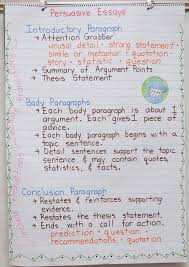 Persuasive Essays
Introductory Paragraph
→ Attention Grabber
unusual detail · strong statement ·
simile or metaphor · quotation ·
story · statistic · question
→ Summary of Argument Points
→ Thesis Statement
Body Paragraphs
→ Each body paragraph is about 1
argument. Each gives 1 piece of
advice.
→ Each body paragraph begins with a
topic sentence.
→ Detail sentences support the topic
sentence & may contain quotes,
statistics, & facts.
Conclusion Paragraph
→ Restates & reinforces supporting
evidence.
→ Restates the thesis statement.
→ Ends with a call for action.
prediction · question ·
recommendations · quotation